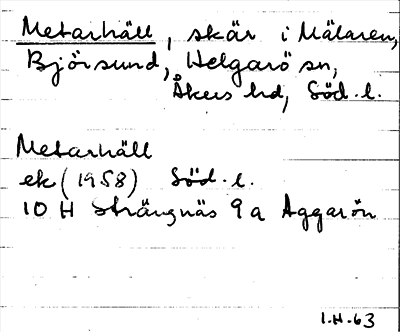 Metarhäll, skär i Mälaren,
Björsund, Helgarö sn,
Åkers hd, Söd. l.
Metarhäll
ek (1958) Söd. l.
10 H Strängnäs 9a Aggarön
I.H.63